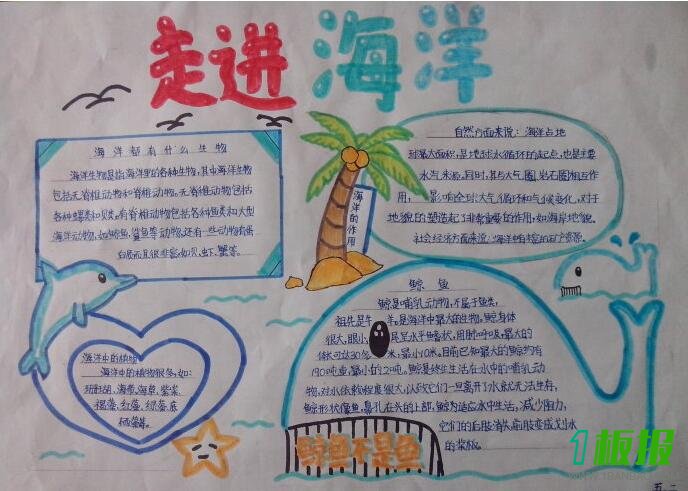 走进海洋
海洋都有什么生物
海洋生物是指海洋里的各种生物,其中海洋生物
包括无脊椎动物和脊椎动物。无脊椎动物包括
各种螺类和贝类。有脊椎动物包括各种鱼类和大型
海洋动物,如鲸鱼,鲨鱼等动物,还有一些动物有蛋
白质而且很丰富如贝、虾、蟹等。
自然方面来说:海洋占地
球最大面积,是地球水循环的起点,也是主要
水气来源,同时,其与大气圈岩石圈相互作
用,影响全球大气循环和气候变化,对于
地貌的塑造起了非常重要的作用,如海岸地貌。
社会经济方面来说:海洋中有丰富的矿产资源。
海洋的作用
鲸鱼
鲸是哺乳动物,不属于鱼类,
祖先是牛羊,是海洋中最大的生物。鲸身体
很大,眼小,尾呈水平鳍状,用肺呼吸,最大的
体长可达30多米,最小10米,目前已知最大的鲸约有
190吨重,最小的2吨。鲸是终生生活在水中的哺乳动
物,对水依赖程度很大,以致它们一旦离开了水就无法生存,
鲸形状像鱼,鼻孔在头的上部,鲸为适应水中生活,减少阻力,
它们的后肢消失,前肢变成划水
的桨板。
鲸鱼不是鱼
海洋中的植物
海洋中的植物很多,如:
海带、海草、紫菜、
褐藻、红藻、绿藻、
1板报
五、二